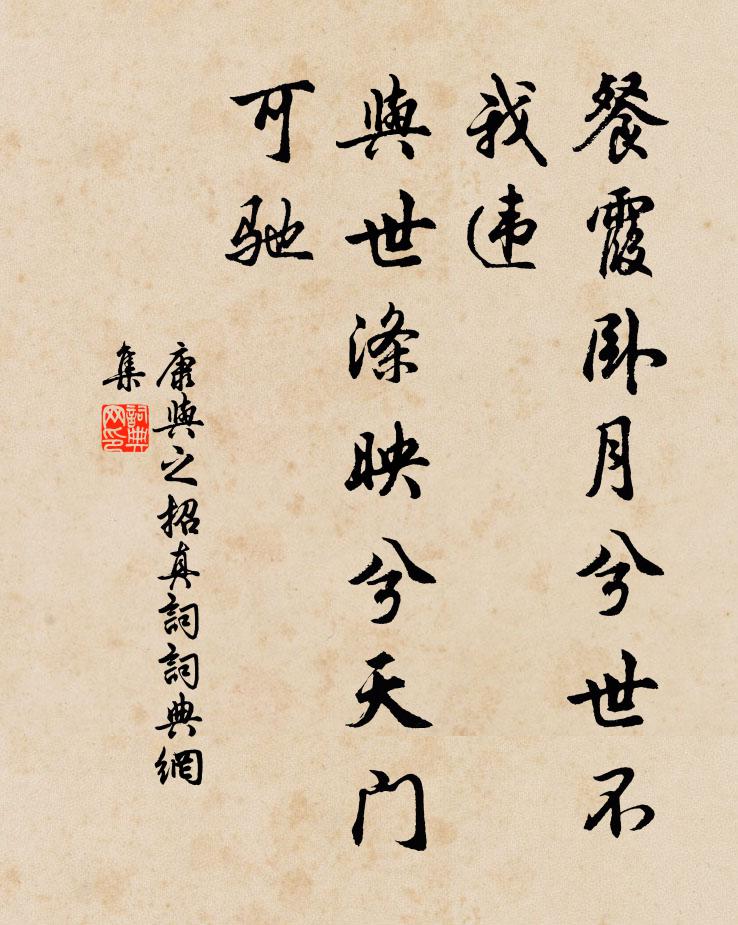 餐霞卧月兮世不
我违
與世滌映兮天门
可驰
康與之招真詞詞典網
集
詞典網印